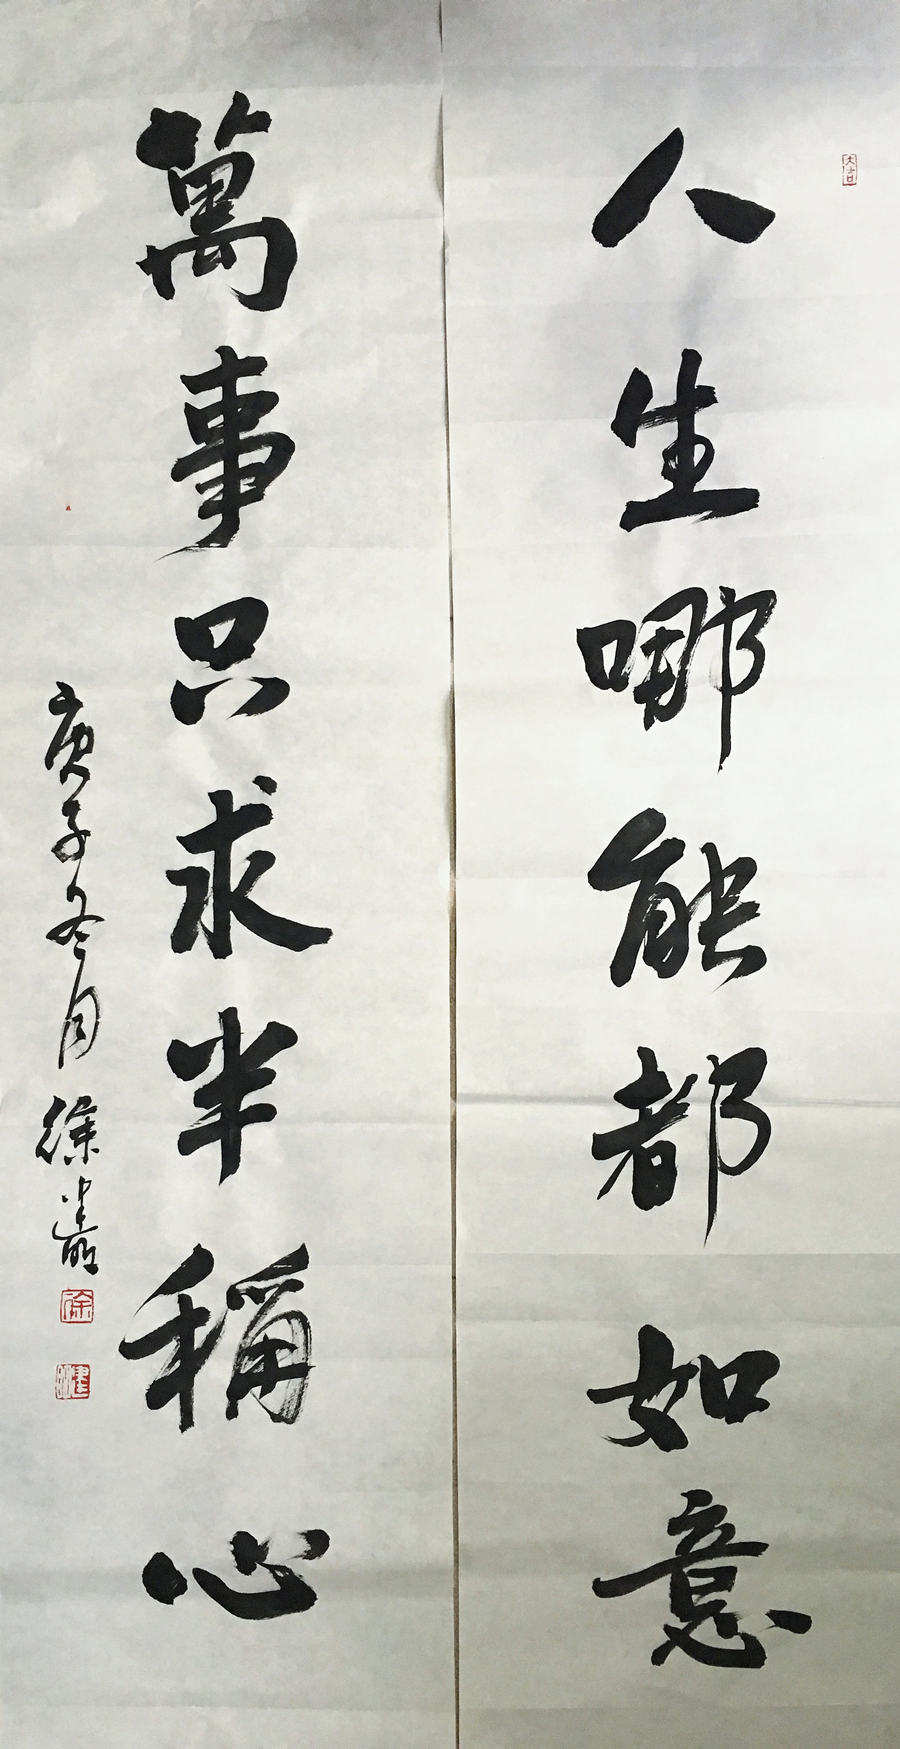 人生哪能都如意
萬事只求半稱心
庚子冬月徐
大吉
徐